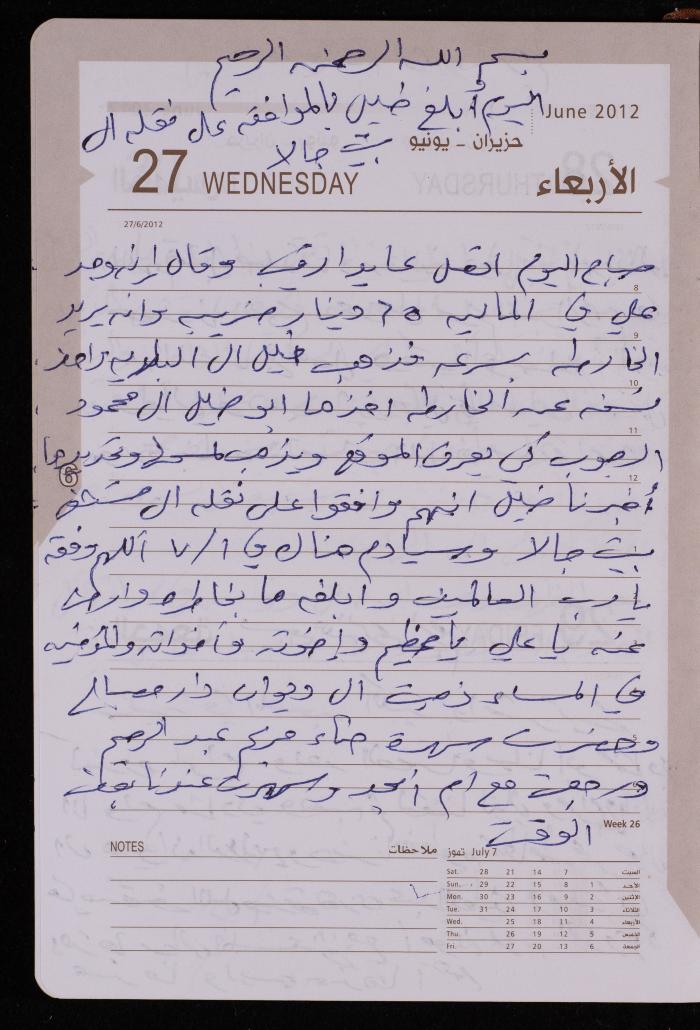 بسم الله الرحمن الرحيم
اليوم أبلغ خليل بالموافقة على نقله الى
بيت جالا
June 2012
حزيران - يونيو
27 WEDNESDAY الأربعاء
27/6/2012
صباح اليوم اتصل عايد ارقب وقال إنه وجد
8
علي في الماليه 65 دينار ضريبه وانه يريد
9
الخارطه بسرعه فذهب خليل الى البلديه واخذ
10
نسخه عن الخارطه اخذها ابو خليل الى محمود
11
الرجوب كي يعرف الموقع ويذهب
12
أخبرنا خليل انهم وافقوا على نقله الى مستشفى
6
بيت جالا وسيداوم هناك في 1/7 اللهم وفقه
يارب العالمين وابلغه ما بخاطره وارض
عنه يا علي يا عظيم وإخوته وأخواته
في المساء ذهبت الى ديوان دار صالح
وحضرت سهرة حناء مريم عبد الرحيم
ورجعت مع ام امجد وسهرت عندنا بعض
الوقت
Week 26
NOTES ملاحظات
تموز July 7
Sat. 28 21 14 7 السبت
Sun. 29 22 15 8 1 الأحد
Mon. 30 23 16 9 2 الإثنين
Tue. 31 24 17 10 3 الثلاثاء
Wed. 25 18 11 4 الأربعاء
Thu. 26 19 12 5 الخميس
Fri. 27 20 13 6 الجمعة